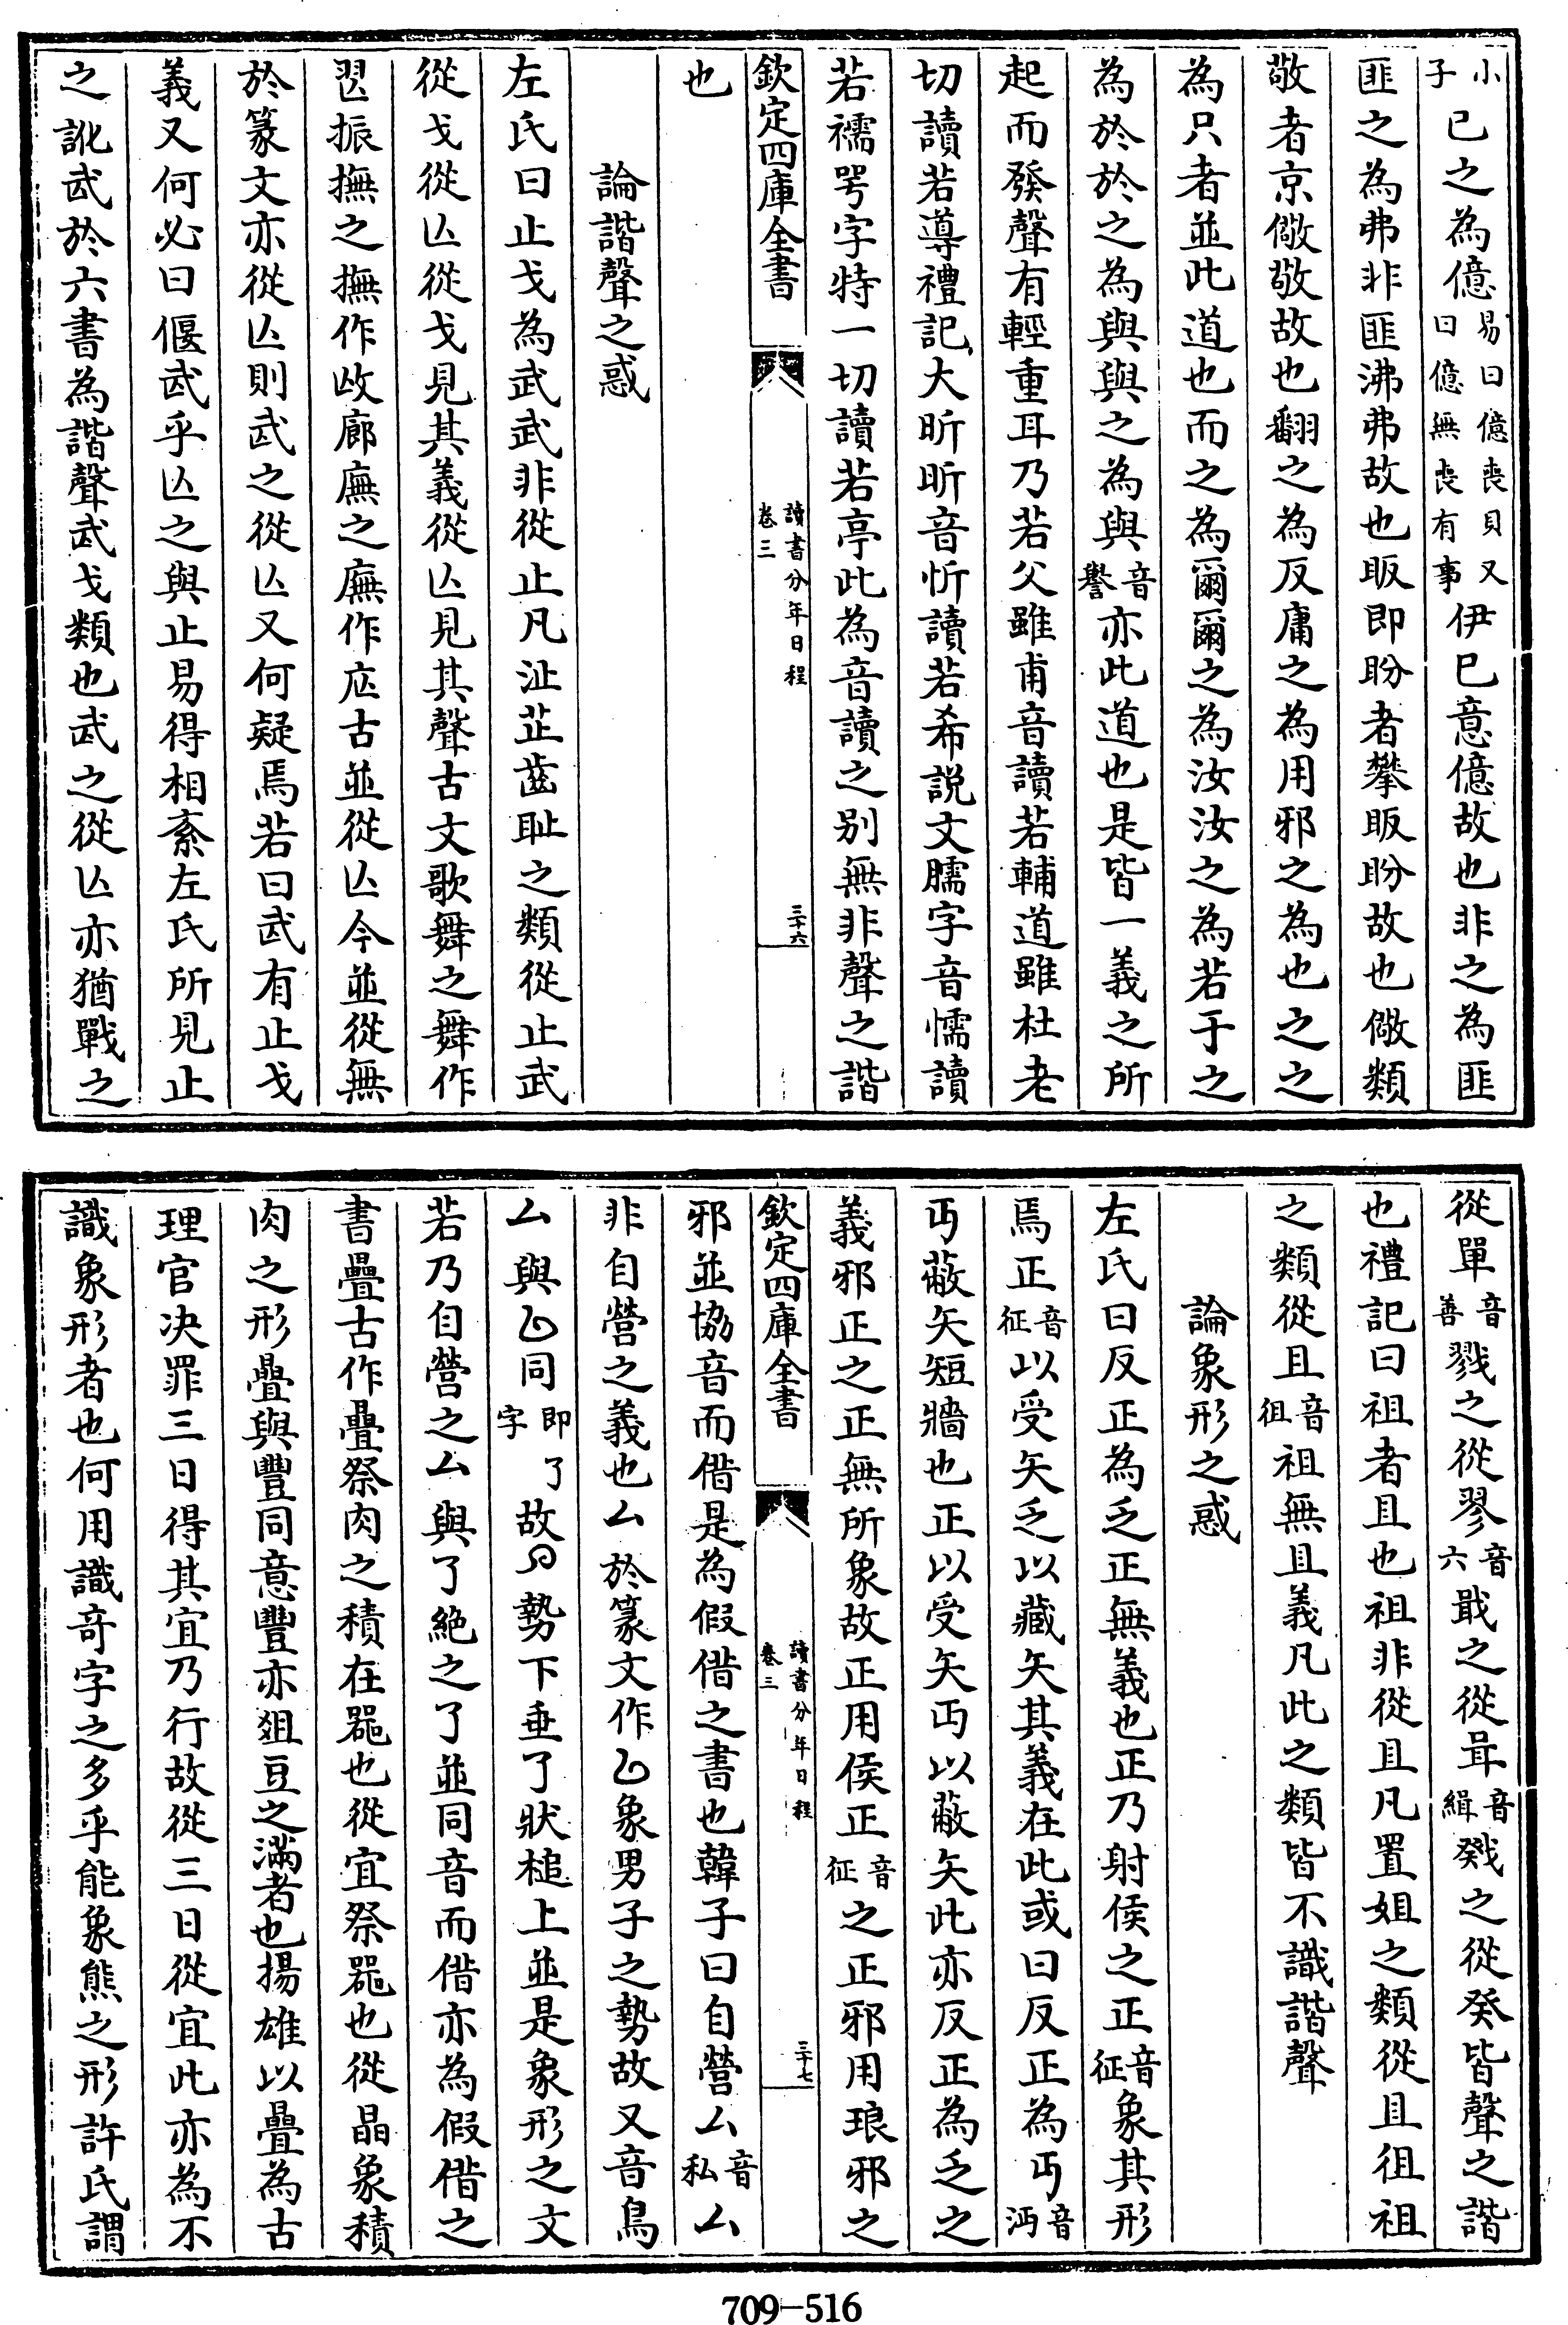 小子已之為億易曰億喪貝又曰億無喪有事伊已意億故也非之為匪
匪之為弗非匪沸弗故也眅即盼者攀眅盼故也儆類
敬者京儆敬故也翻之為反庸之為用邪之為也之之
為只者並此道也而之為爾爾之為汝汝之為若于之
為於於之為與與之為與音譽亦此道也是皆一義之所
起而發聲有輕重耳乃若父雖甫音讀若輔道雖杜老
切讀若導禮記大昕昕音忻讀若希説文臑字音懦讀
若襦咢字特一切讀若亭此為音讀之别無非聲之諧
欽定四庫全書 讀書分年日程 卷三 三十六
也
論諧聲之惑
左氏曰止戈為武武非從止凡沚芷齒耻之類從止武
從戈從亾從戈見其義從亾見其聲古文歌舞之舞作
𦐀振撫之撫作㧑廊廡之廡作庂古並從亾今並從無
於篆文亦從亾則武之從亾又何疑焉若曰武有止戈
義又何必曰偃武乎亾之與止易得相紊左氏所見止
之訛武於六書為諧聲武戈類也武之從亾亦猶戰之
從單音善戮之從翏音六戢之從咠音緝戣之從癸皆聲之諧
也禮記曰祖者且也祖非從且凡置姐之類從且徂祖
之類從且音徂祖無且義凡此之類皆不識諧聲
論象形之惑
左氏曰反正為乏正無義也正乃射侯之正音征象其形
焉正音征以受矢乏以藏矢其義在此或曰反正為丏音沔
丏蔽矢短牆也正以受矢丏以蔽矢此亦反正為乏之
義邪正之正無所象故正用侯正音征之正邪用琅邪之
欽定四庫全書 讀書分年日程 卷三 三十七
邪並協音而借是為假借之書也韓子曰自營厶音私厶
非自營之義也厶於篆文作㠯象男子之勢故又音鳥
厶與㔾同即了字故勢下垂了狀槌上並是象形之文
若乃自營之厶與了絶之了並同音而借亦為假借之
書疊古作疊祭肉之積在噐也從宜祭噐也從晶象積
肉之形疊與豐同意豐亦俎豆之滿者也揚雄以疊為古
理官决罪三日得其宜乃行故從三日從宜此亦為不
識象形者也何用識竒字之多乎能象熊之形許氏謂
709-516